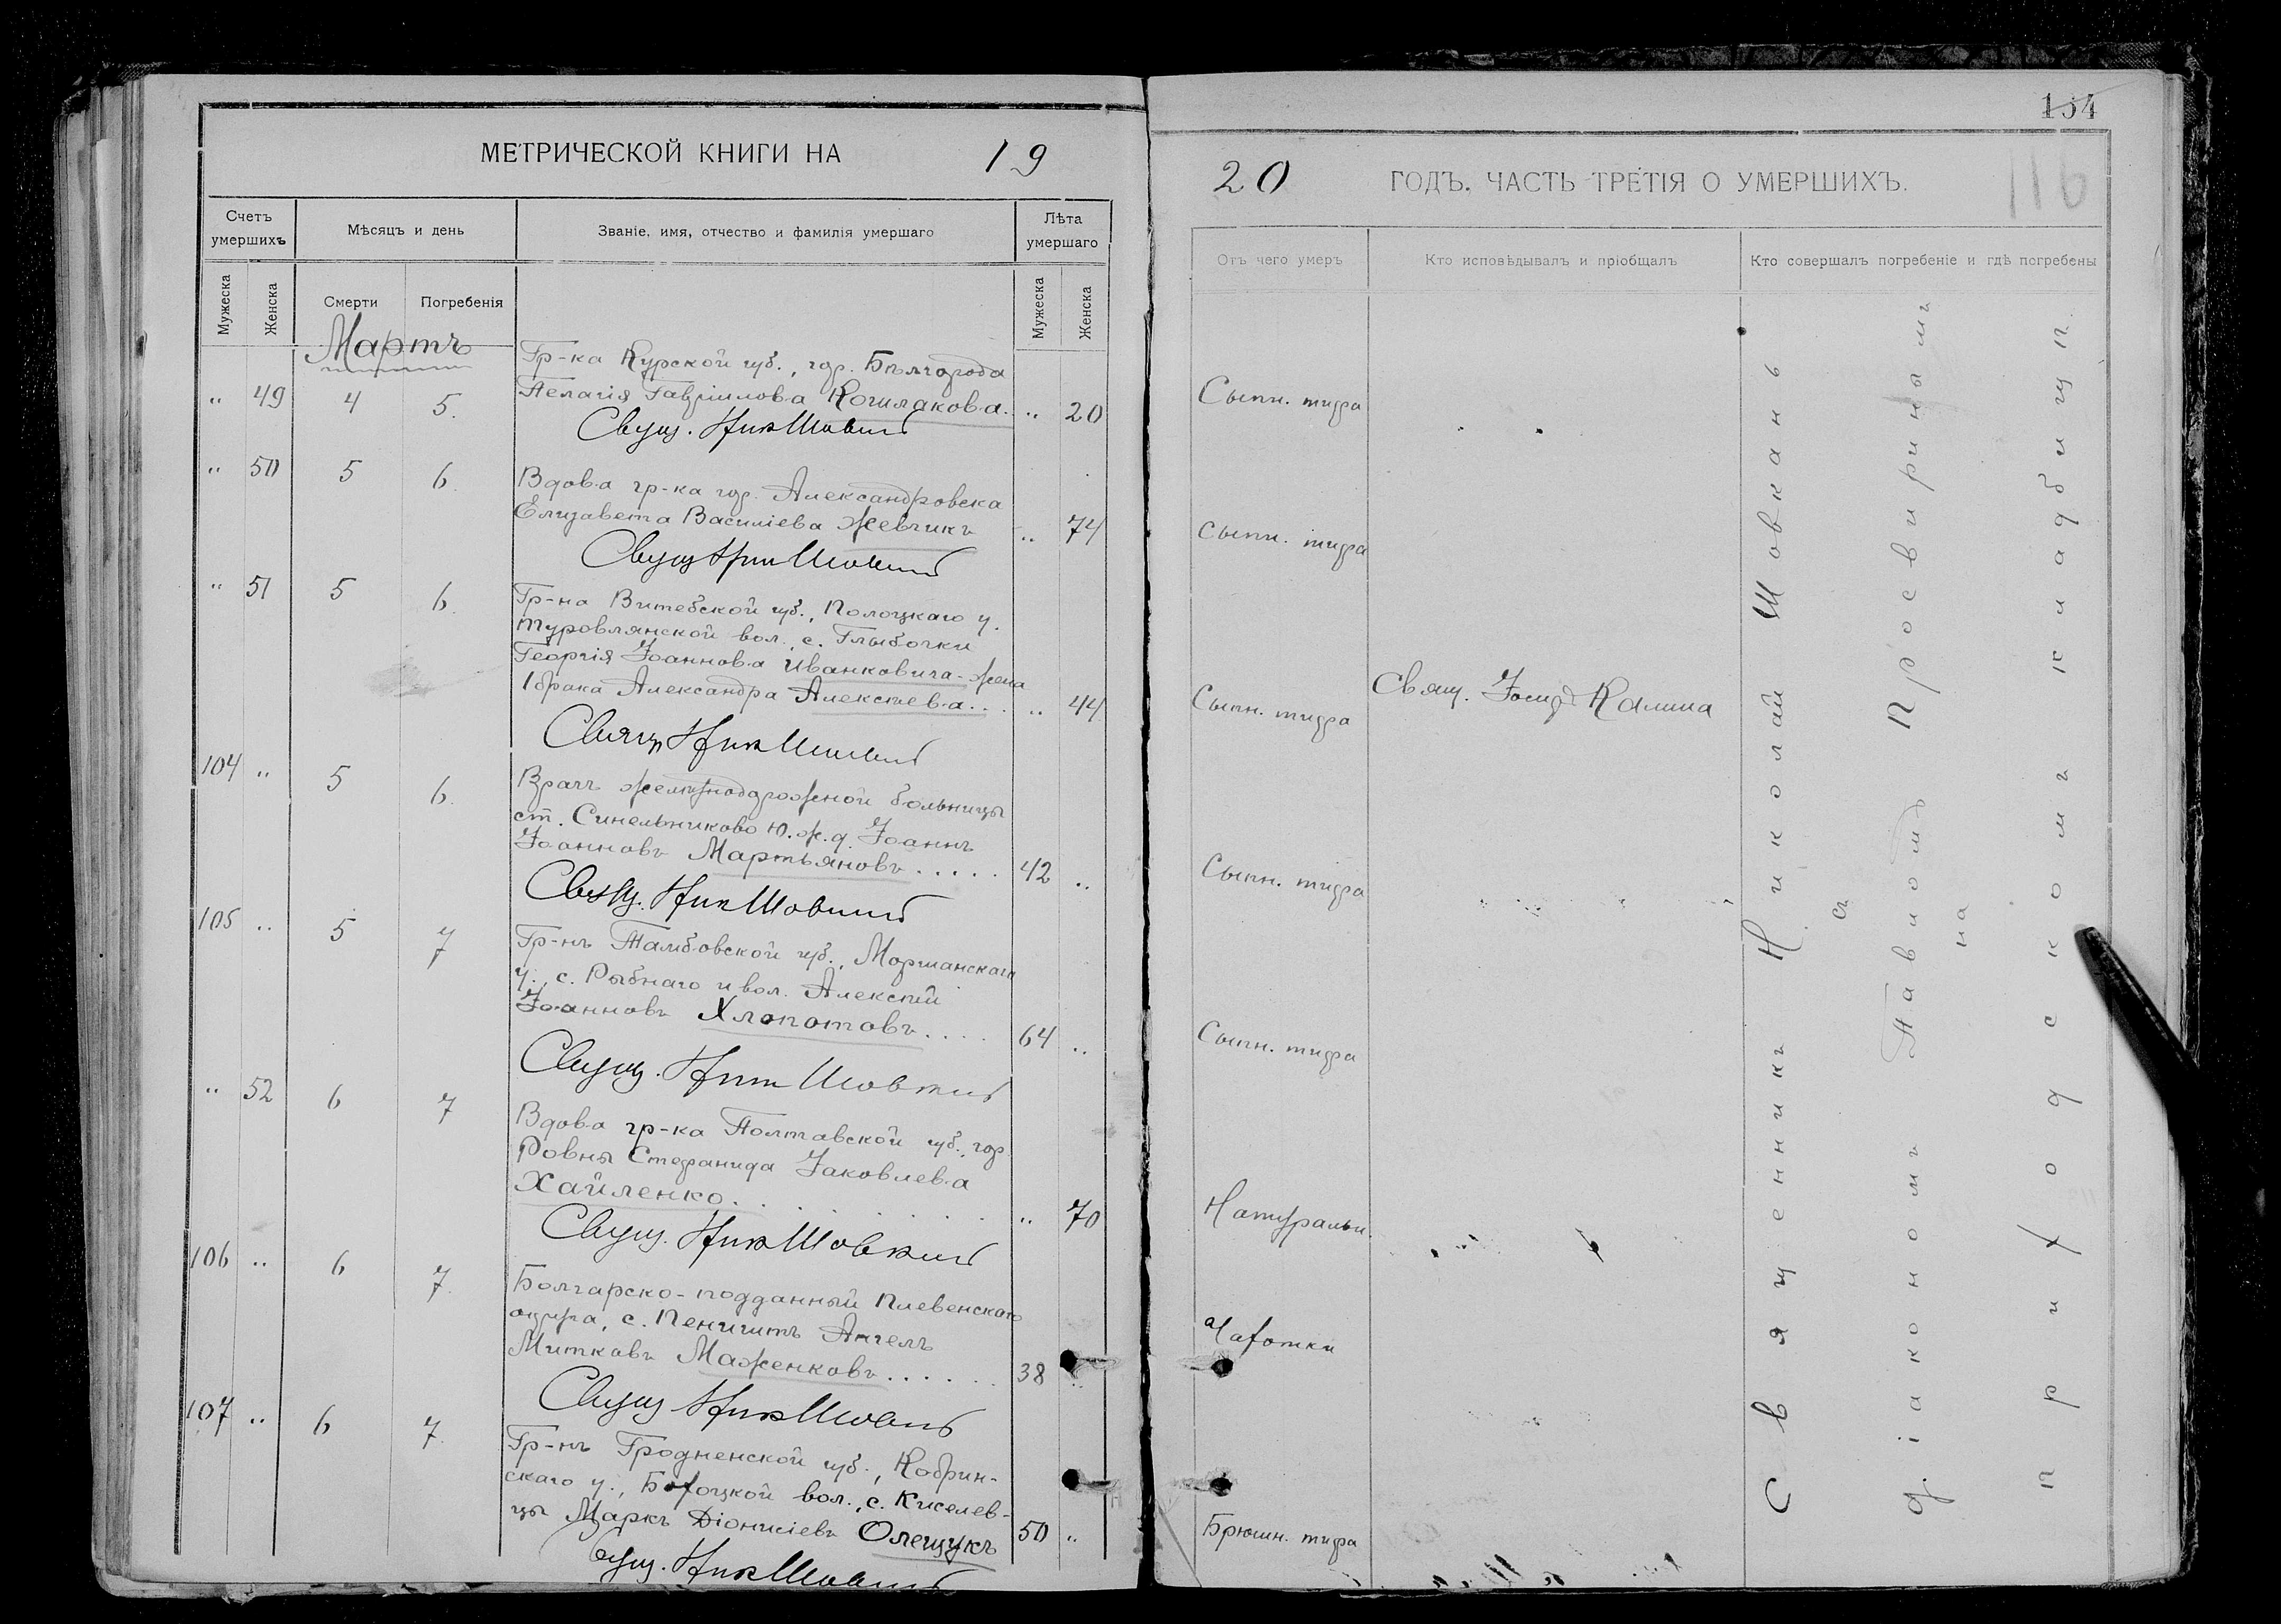 МЕТРИЧЕСКОЙ КНИГИ НА 19
Счетъ умершихъ
Мѣсяцъ и день
Званіе, имя, отчество и фамилія умершаго
Лѣта умершаго
Мужеска
Женска
Смерти
Погребенія
Мужеска
Женска
Мартъ
" 49 4 5.
Гр-ка Курской губ., гор. Бѣлгорода
Пелагія Гавріилова Кошлакова. " 20
Свящ. Ник Шовкан
" 50 5 6.
Вдова гр-ка гор. Александровска
Елизавета Василіева Жевчикъ " 74
Свящ Ник Шовкан
" 51 5 6.
Гр-на Витебской губ., Полоцкаго у.
Туровлянской вол., с. Глыбочки
Георгія Іоаннова Иванковича - жена
1 брака Александра Алексѣева... " 44
Свящ Ник Шовкан
104 " 5 6.
Врачъ желѣзнодорожной больницы
ст. Синельниково Ю. ж. д. Іоаннъ
Іоанновъ Мартьяновъ..... 42 "
Свящ. Ник Шовкан
105 " 5 7
Гр-нъ Тамбовской губ., Моршанскаго
у., с. Рыбнаго и вол. Алексѣй
Іоанновъ Хлопотовъ.... 64 "
Свящ. Ник Шовкан
" 52 6 7
Вдова гр-ка Полтавской губ., гор.
Ровны Стефанида Іаковлева
Хайленко. " 70
Свящ. Ник Шовкан
106 " 6 7.
Болгарско-подданный Плевенскаго
округа, с. Ангелъ
Митковъ Маженковъ...... 38 "
Свящ Ник Шовкан
107 " 6 7.
Гр-нъ Гродненской губ., Кобрин-
скаго у., вол., с. Киселев-
цы Маркъ Діонисіевъ Олещукъ 50 "
Свящ. Ник Шовкан
154
116
20 ГОДЪ. ЧАСТЬ ТРЕТІЯ О УМЕРШИХЪ.
Отъ чего умеръ
Кто исповѣдывалъ и пріобщалъ
Кто совершалъ погребеніе и гдѣ погребены
Сыпн. тифа
Сыпн. тифа
Сыпн. тифа
Свящ. Іосифъ Калина
Сыпн. тифа
Сыпн. тифа
Натуральн.
Чахотки
Брюшн. тифа
Священникъ Николай Шовкань
съ
діакономъ Павломъ Просвиринымъ
на
приходскомъ кладбищѣ